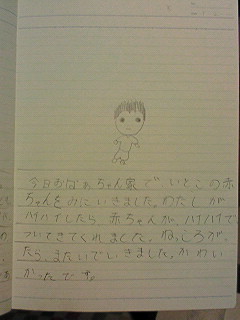 今日おばあちゃん家で、いとこの赤
ちゃんをみにいきました。わたしが
ハイハイしたら、赤ちゃんが、ハイハイで
ついてきてくれました。ねっころがっ
たら、またいでいきました。かわい
かったです。